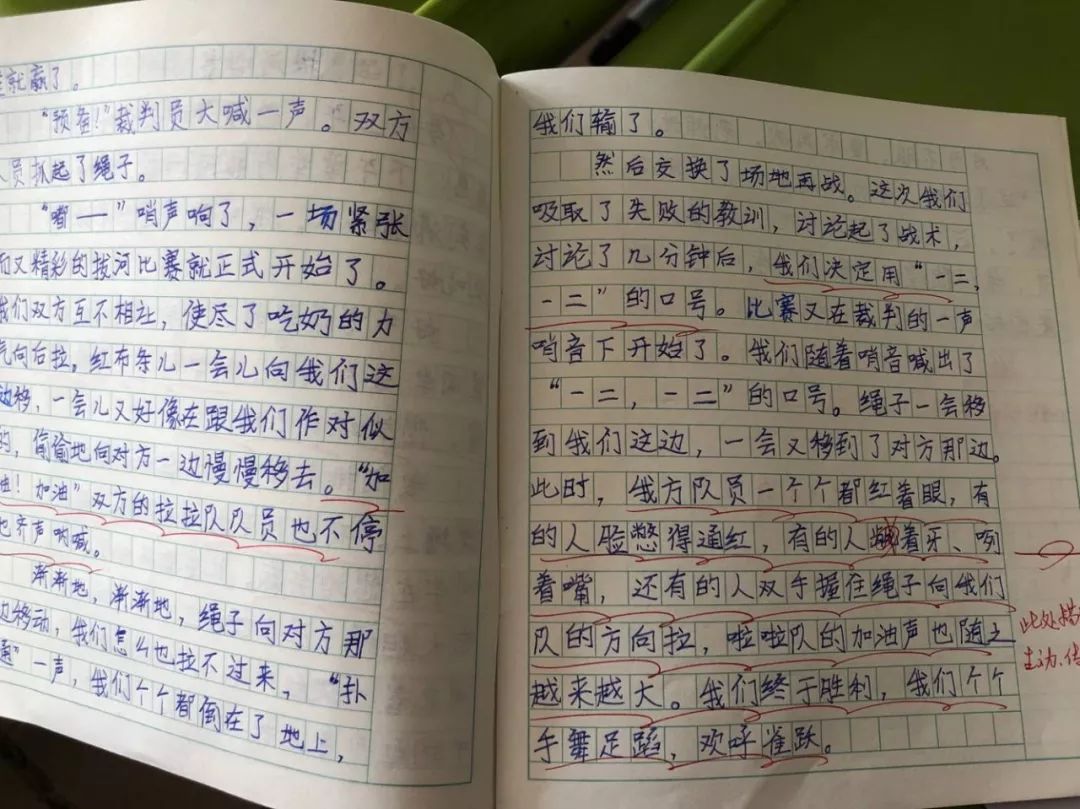 就赢了。
“预备!”裁判员大喊一声。双方
人员抓起了绳子。
“嘟一”哨声响了，一场紧张
而又精彩的拔河比赛就正式开始了。
我们双方互不相让，使尽了吃奶的力
气向后拉。红布条儿一会儿向我们这
边移，一会儿又好像在跟我们作对似
的，偷偷地向对方一边慢慢移去。“加
油！加油”双方的拉拉队队员也不停
地齐声呐喊。
渐渐地，渐渐地，绳子向对方那
边移动，我们怎么也拉不过来，“扑
通”一声，我们个个都倒在了地上，
我们输了。
然后交换了场地再战。这次我们
吸取了失败的教训，讨论起了战术，
讨论了几分钟后，我们决定用“一二，
一二”的口号。比赛又在裁判的一声
哨音下开始了。我们随着哨音喊出了
“一二，一二”的口号。绳子一会移
到我们这边，一会又移到了对方那边。
此时，我方队员一个个都红着眼，有
的人脸憋得通红，有的人着牙、咧
着嘴，还有的人双手握住绳子向我们
队的方向拉，啦啦队的加油声也随之
越来越大。我们终于胜利，我们个个
手舞足蹈，欢呼雀跃。
此处描
生动、传